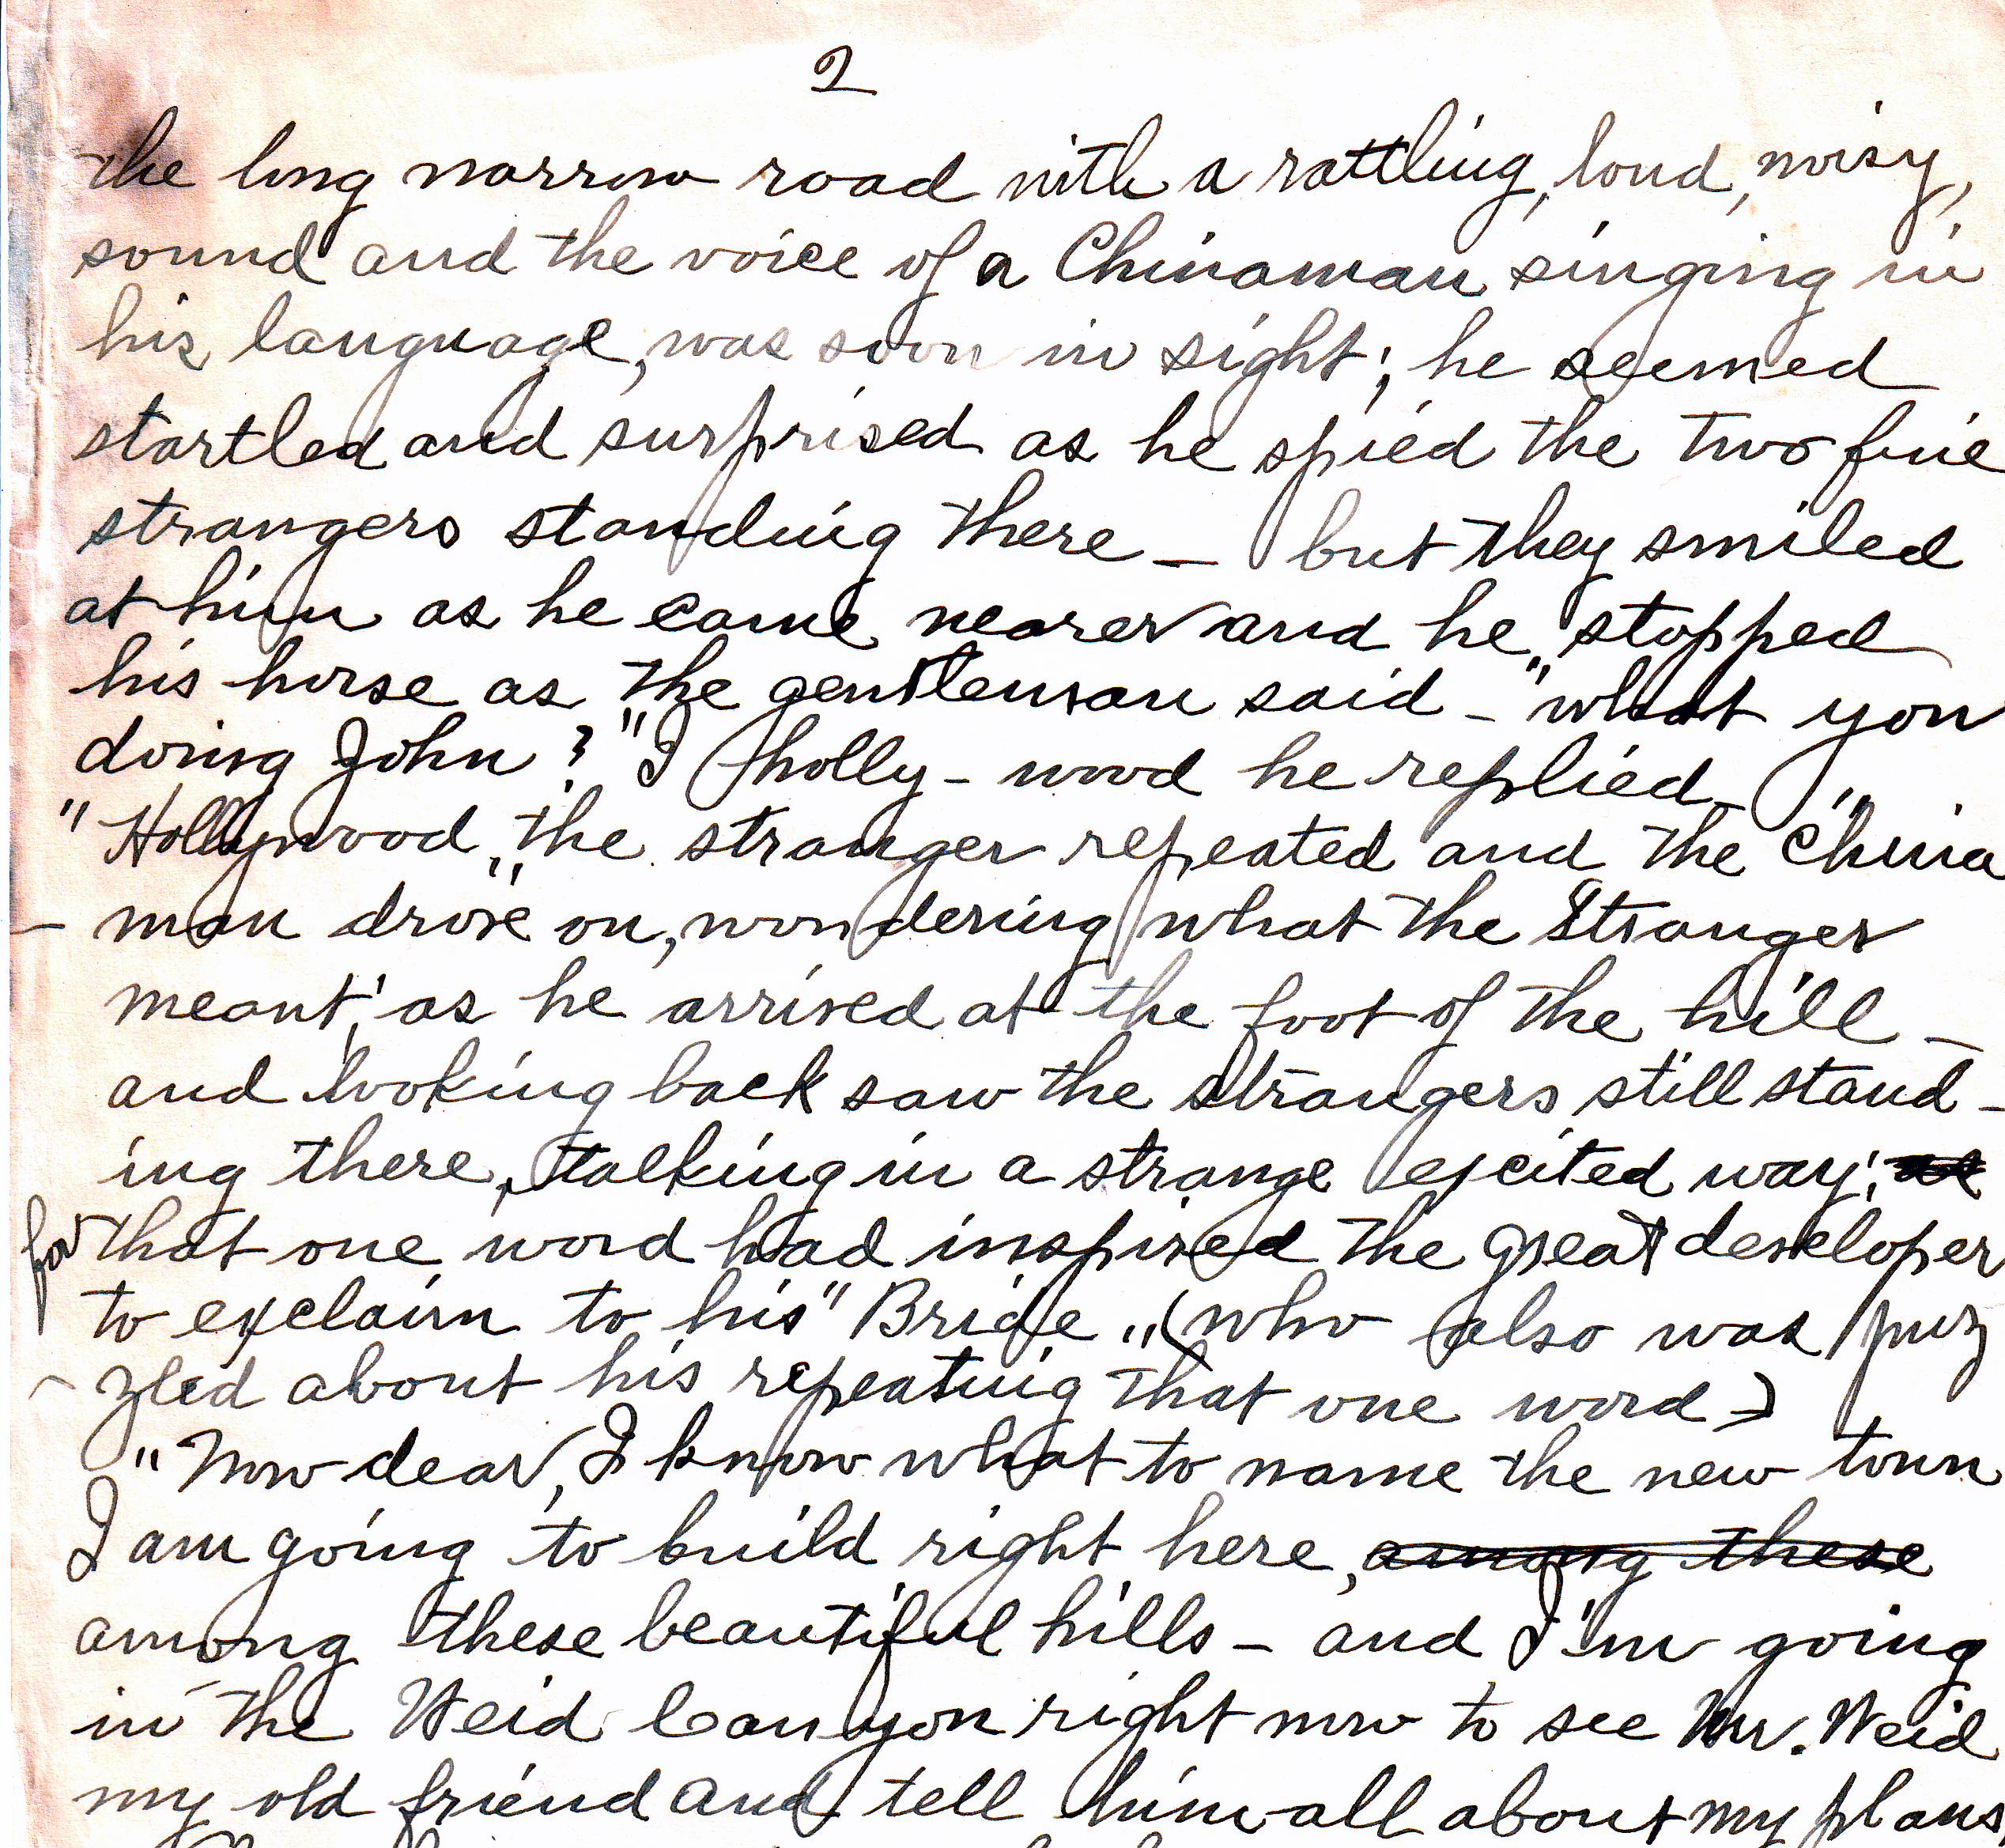 2
the long narrow road with a rattling, loud, noisy,
sound and the voice of a Chinaman singing in
his language, was soon in sight; he seemed
startled and surprised as he spied the two fine
strangers standing there – but they smiled
at him as he came nearer and he stopped
his horse as "the gentleman said – "what you
doing John?" I holly – wood he replied –
"Hollywood," the stranger repeated and the China
– man drove on, wondering what the Stranger
meant; as he arrived at the foot of the hill –
and looking back saw the strangers still stand –
ing there, talking in a strange excited way; 
for that one word had inspired the great developer
to exclaim to his "Bride" (who also was puz
– zled about his repeating that one word)
"Now dear, I know what to name the new town
I am going to build right here, among these
among these beautiful hills – and I'm going
in the Weid Canyon right now to see Mr. Weid
my old friend and tell him all about my plans